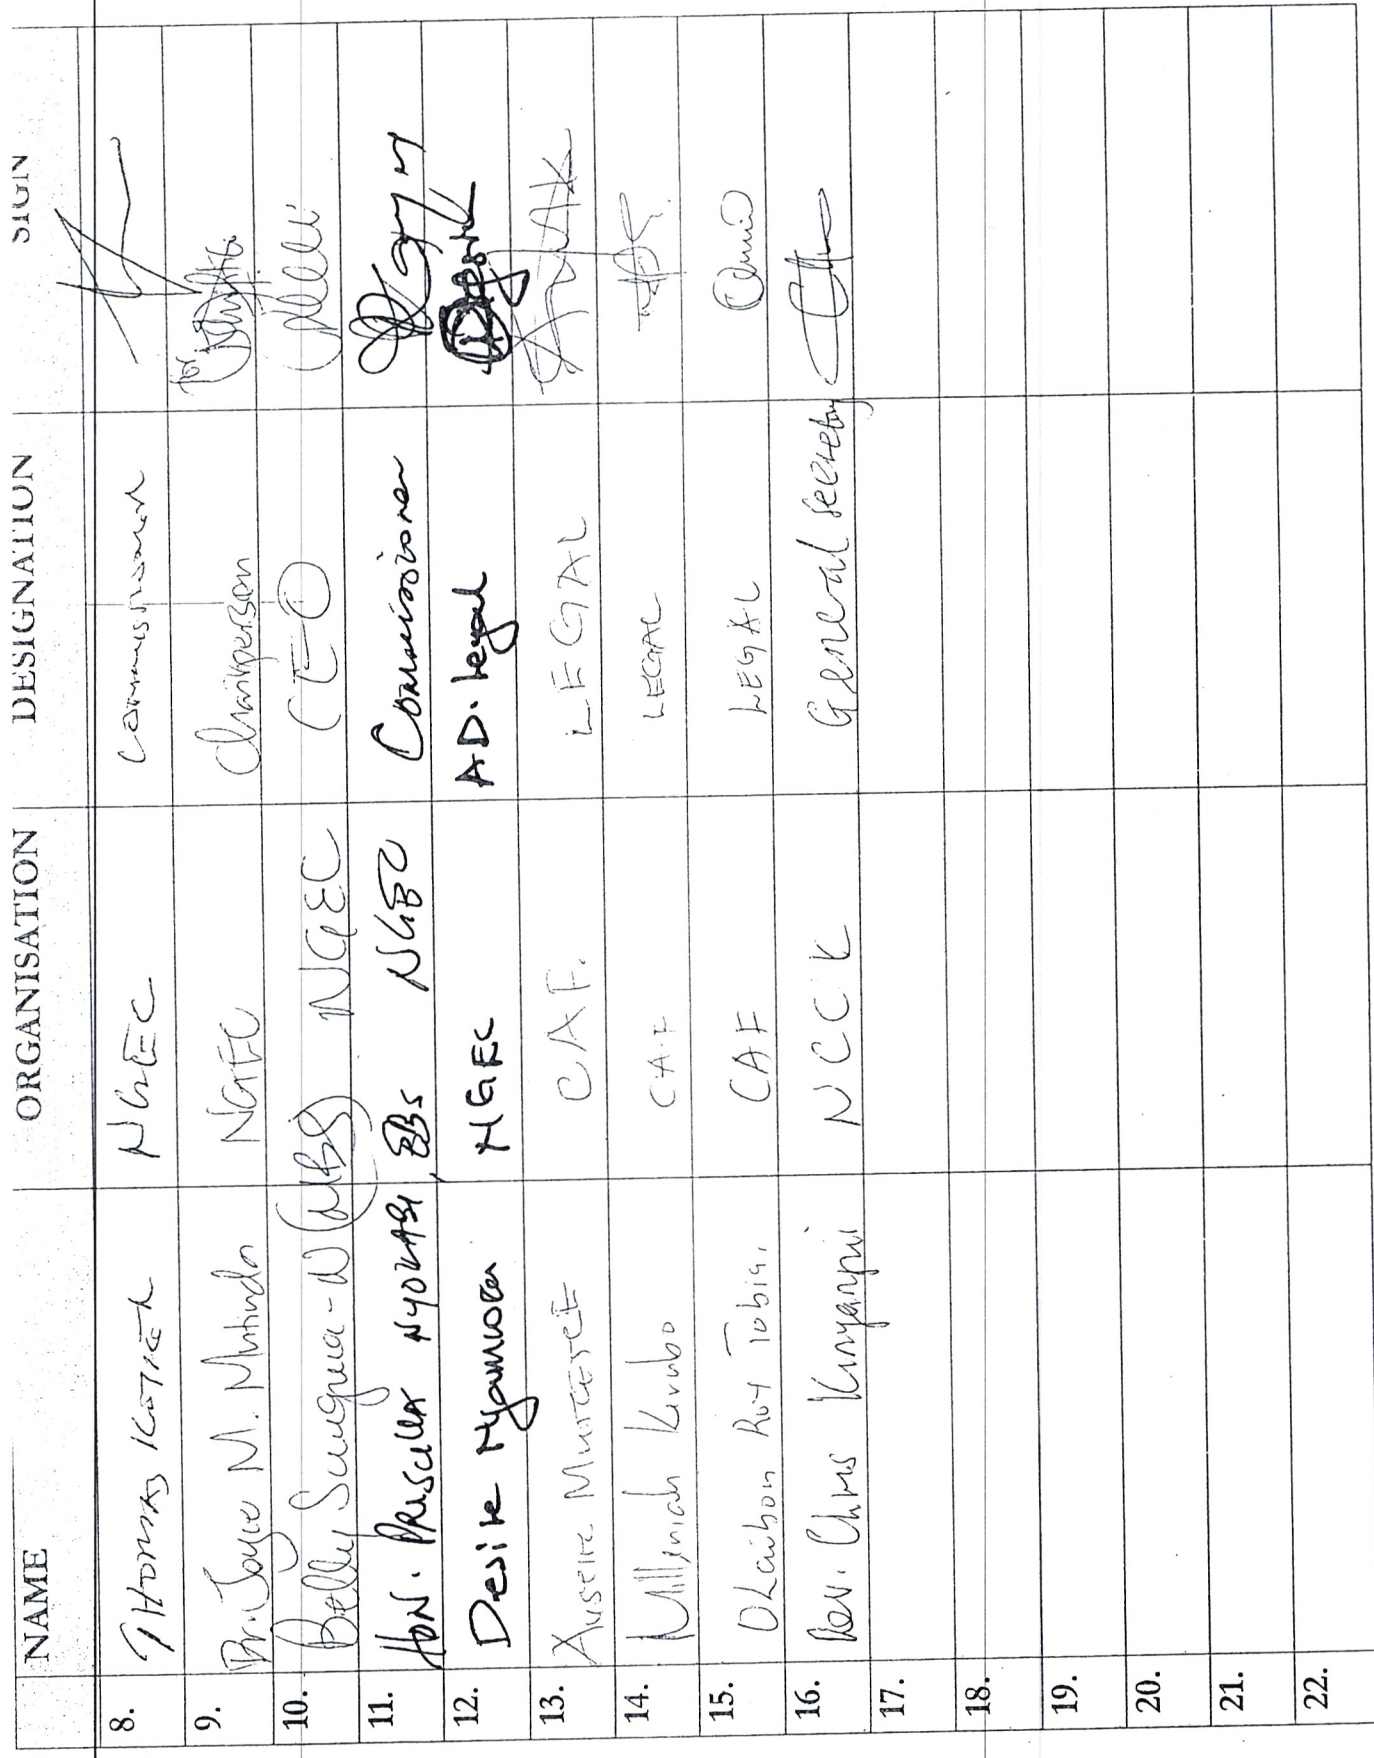 NAME ORGANISATION DESIGNATION SIGN
8. THOMAS KOTIER NGEC Commissioner
9. Joyce M. Mutinda NGEC Chairperson for
10. Betty Sungura-N (MBS) NGEC CEO
11. HON. PRISCILLA NYOKABI, EBS NGEC Commissioner
12. Desire Nyamwea NGEC AD. Legal
13. CAF. LEGAL
14. Milleniah Kirubo CAF LEGAL
15. Roy Tobia. CAF LEGAL
16. Rev. Chris Kinyanjui NCCK General Secretary
17.
18.
19.
20.
21.
22.